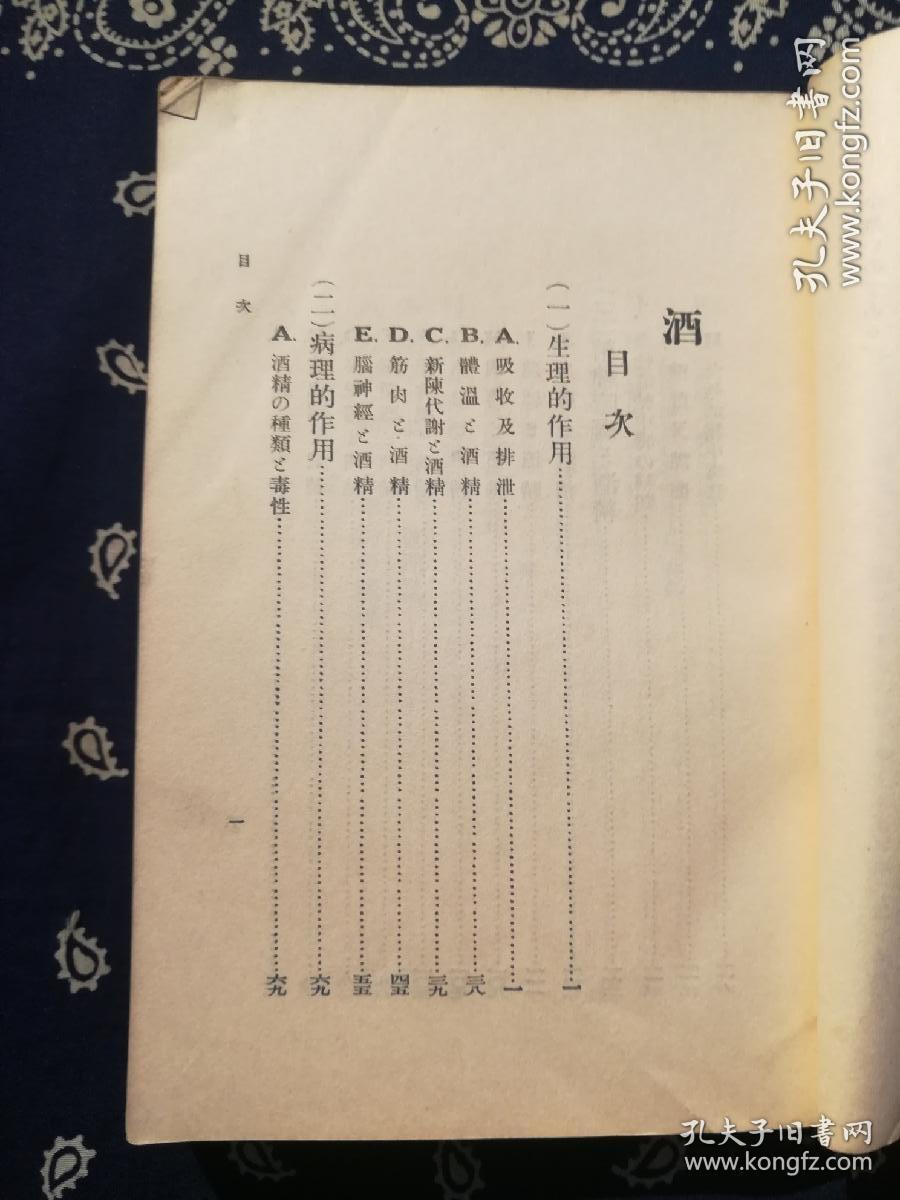 酒
目次
(一)生理的作用……一
A. 吸收及排泄……一
B. 體溫と酒精……三八
C. 新陳代謝と酒精……三九
D. 筋肉と酒精……四五
E. 腦神經と酒精……五五
(二)病理的作用……六九
A. 酒精の種類と毒性……六九
目次
一
孔夫子旧书网
www.kongfz.com
孔夫子旧书网
www.kongfz.com